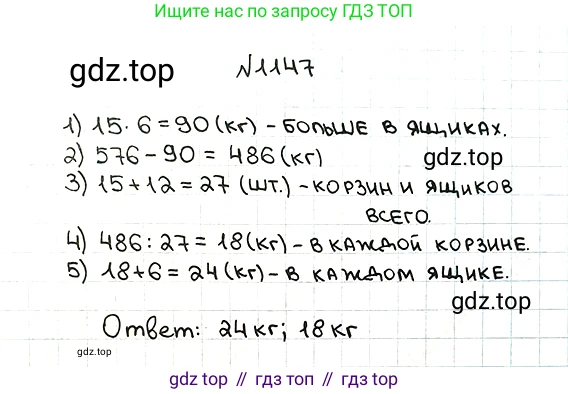 Ищите нас по запросу ГДЗ ТОП
gdz.top
№1147
1) 15 · 6 = 90 (кг) - больше в ящиках.
2) 576 - 90 = 486 (кг)
gdz.top
3) 15 + 12 = 27 (шт.) - корзин и ящиков
всего.
4) 486 : 27 = 18 (кг) - в каждой корзине.
5) 18 + 6 = 24 (кг) - в каждом ящике.
gdz.top
Ответ: 24 кг; 18 кг
gdz.top
gdz top // гдз топ // гдз.top